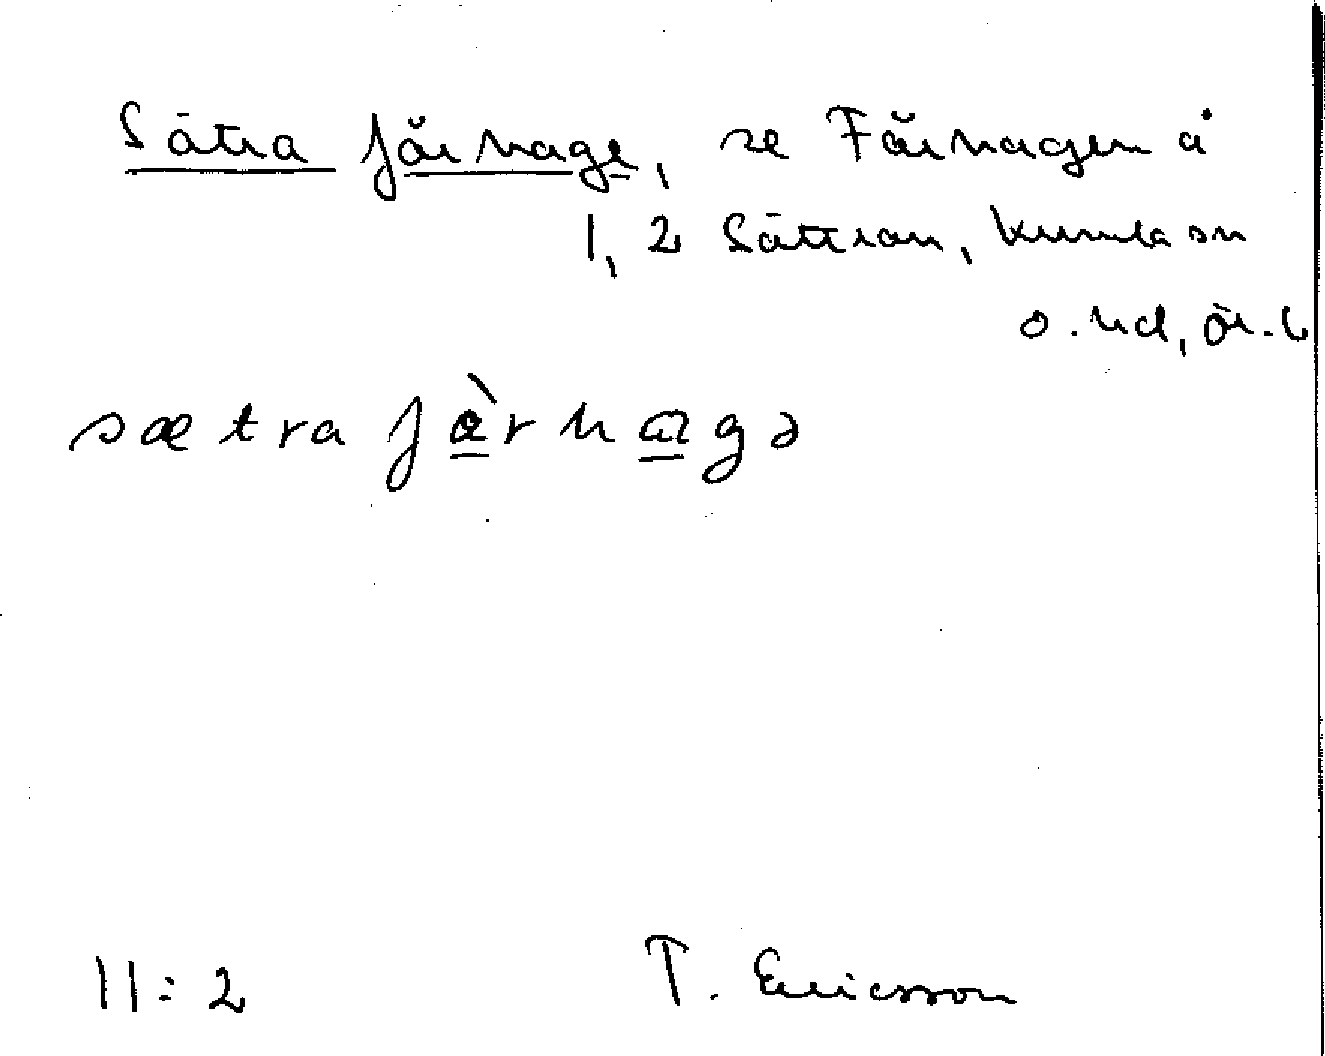 Sätra fårhage, se Fårhagen å
1, 2 Sättran, Kumla sn
o. hd, Ör. l
sætra fàrhagə
11:2 T. Ericsson